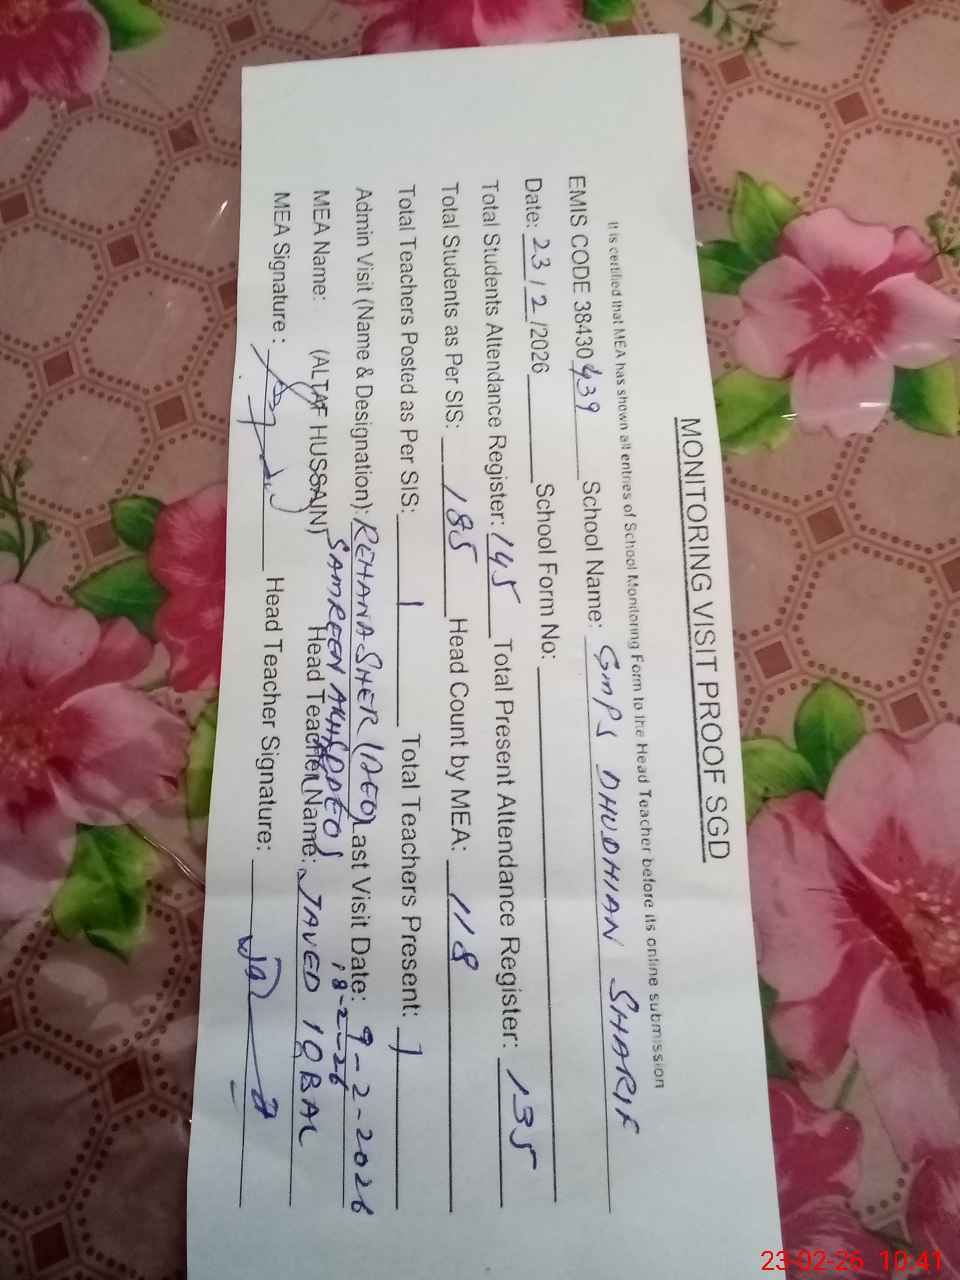 MONITORING VISIT PROOF SGD
It is certified that MEA has shown all entries of School Monitoring Form to the Head Teacher before its online submission
EMIS CODE 38430439 School Name: GMPS DHUDHIAN SHARIF
Date: 23/2/2026 School Form No:
Total Students Attendance Register: 145 Total Present Attendance Register: 135
Total Students as Per SIS: 185 Head Count by MEA: 118
Total Teachers Posted as Per SIS: 1 Total Teachers Present: 1
Admin Visit (Name & Designation): REHANA SHER (AEO) Last Visit Date: 9-2-2026
SAMREEN 18-2-26
MEA Name: (ALTAF HUSSAIN) Head Teacher Name: JAVED IQBAL
MEA Signature: Head Teacher Signature:
23-02-26 10:41